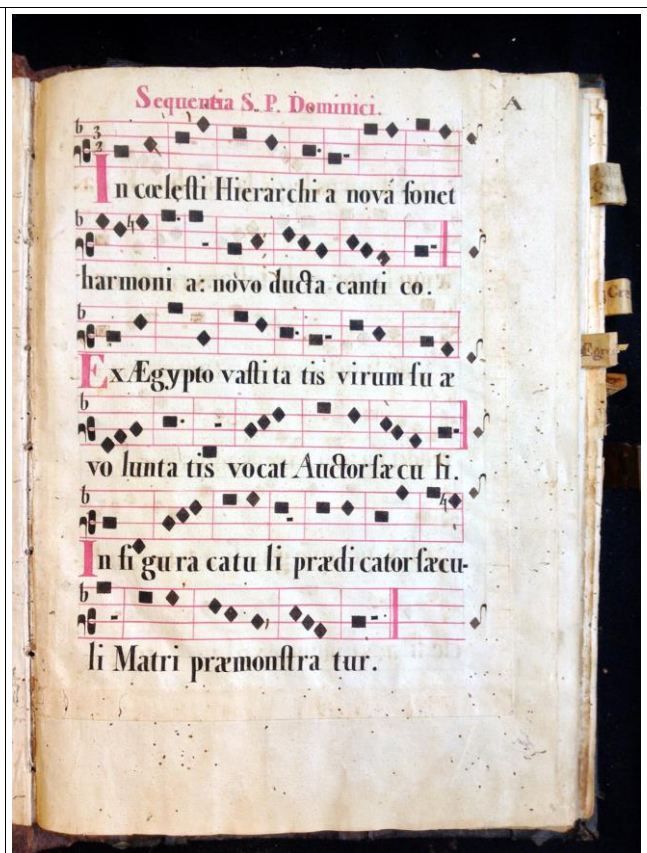 Sequentia S. P. Dominici.
A
In cœlesti Hierarchi a nová sonet
harmoni a: novo ducta canti co.
Ex Ægypto vasti ta tis virum su æ
vo lunta tis vocat Auctor sæ cu li.
In fi gu ra catu li prædi cator sæcu-
li Matri præmonstra tur.